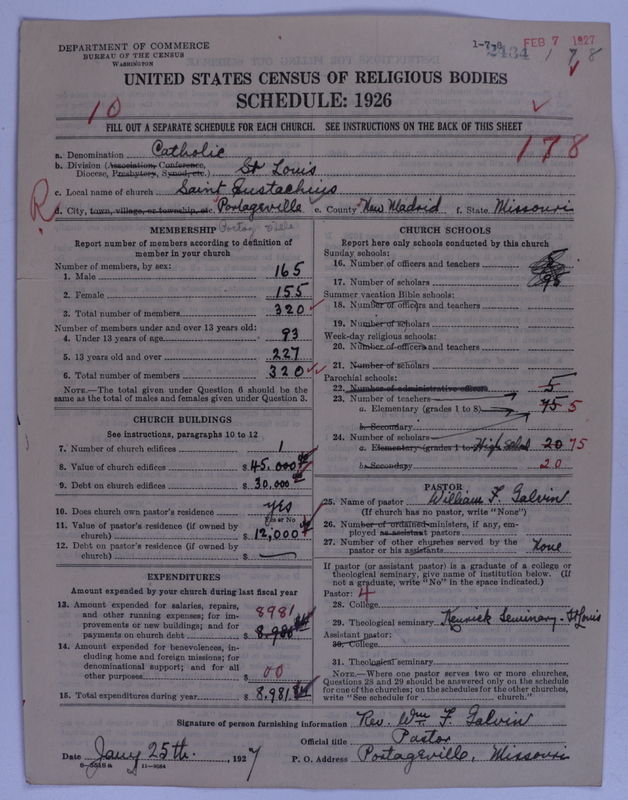 DEPARTMENT OF COMMERCE
BUREAU OF THE CENSUS
WASHINGTON
1-7-8 2434 FEB 7 1927
1 7 8
UNITED STATES CENSUS OF RELIGIOUS BODIES
SCHEDULE: 1926
10
FILL OUT A SEPARATE SCHEDULE FOR EACH CHURCH. SEE INSTRUCTIONS ON THE BACK OF THIS SHEET
178
a. Denomination Catholic
b. Division (Association, Conference, Diocese, Presbytery, Synod, etc.) St Louis
c. Local name of church Saint Eustachius
R
d. City, town, village, or township, etc. Portageville e. County New Madrid f. State Missouri
Portage ville
MEMBERSHIP
Report number of members according to definition of
member in your church
Number of members, by sex:
1. Male 165
2. Female 155
3. Total number of members 320
Number of members under and over 13 years old:
4. Under 13 years of age 93
5. 13 years old and over 227
6. Total number of members 320
NOTE.—The total given under Question 6 should be the
same as the total of males and females given under Question 3.
CHURCH BUILDINGS
See instructions, paragraphs 10 to 12
7. Number of church edifices 1
8. Value of church edifices $ 45.000 00
9. Debt on church edifices $ 30,000 00
10. Does church own pastor's residence yes
Yes or No
11. Value of pastor's residence (if owned by
church) $ 12,000 00
12. Debt on pastor's residence (if owned by
church) $
EXPENDITURES
Amount expended by your church during last fiscal year
13. Amount expended for salaries, repairs,
and other running expenses; for im-
provements or new buildings; and for
payments on church debt $ 8981
14. Amount expended for benevolences, in-
cluding home and foreign missions; for
denominational support; and for all
other purposes $ 00
15. Total expenditures during year $ 8,981.
CHURCH SCHOOLS
Report here only schools conducted by this church
Sunday schools:
16. Number of officers and teachers
17. Number of scholars
Summer vacation Bible schools:
18. Number of officers and teachers
19. Number of scholars
Week-day religious schools:
20. Number of officers and teachers
21. Number of scholars
Parochial schools:
22. Number of administrative officers 5
23. Number of teachers
a. Elementary (grades 1 to 8) 75 5
b. Secondary
24. Number of scholars
a. Elementary (grades 1 to High School 20 75
b. Secondary 20
PASTOR
25. Name of pastor William F. Galvin
(If church has no pastor, write "None")
26. Number of ordained ministers, if any, em-
ployed as assistant pastors
27. Number of other churches served by the
pastor or his assistants None
If pastor (or assistant pastor) is a graduate of a college or
theological seminary, give name of institution below. (If
not a graduate, write "No" in the space indicated.)
Pastor: 4
28. College
29. Theological seminary Kenrick Seminary - St Louis
Assistant pastor:
30. College
31. Theological seminary
NOTE.—Where one pastor serves two or more churches,
Questions 28 and 29 should be answered only on the schedule
for one of the churches; on the schedules for the other churches,
write "See schedule for church."
Signature of person furnishing information Rev. Wm F. Galvin
Official title Pastor
Date Jany 25th. , 1927 P. O. Address Portageville, Missouri
8-5518a 11-9084